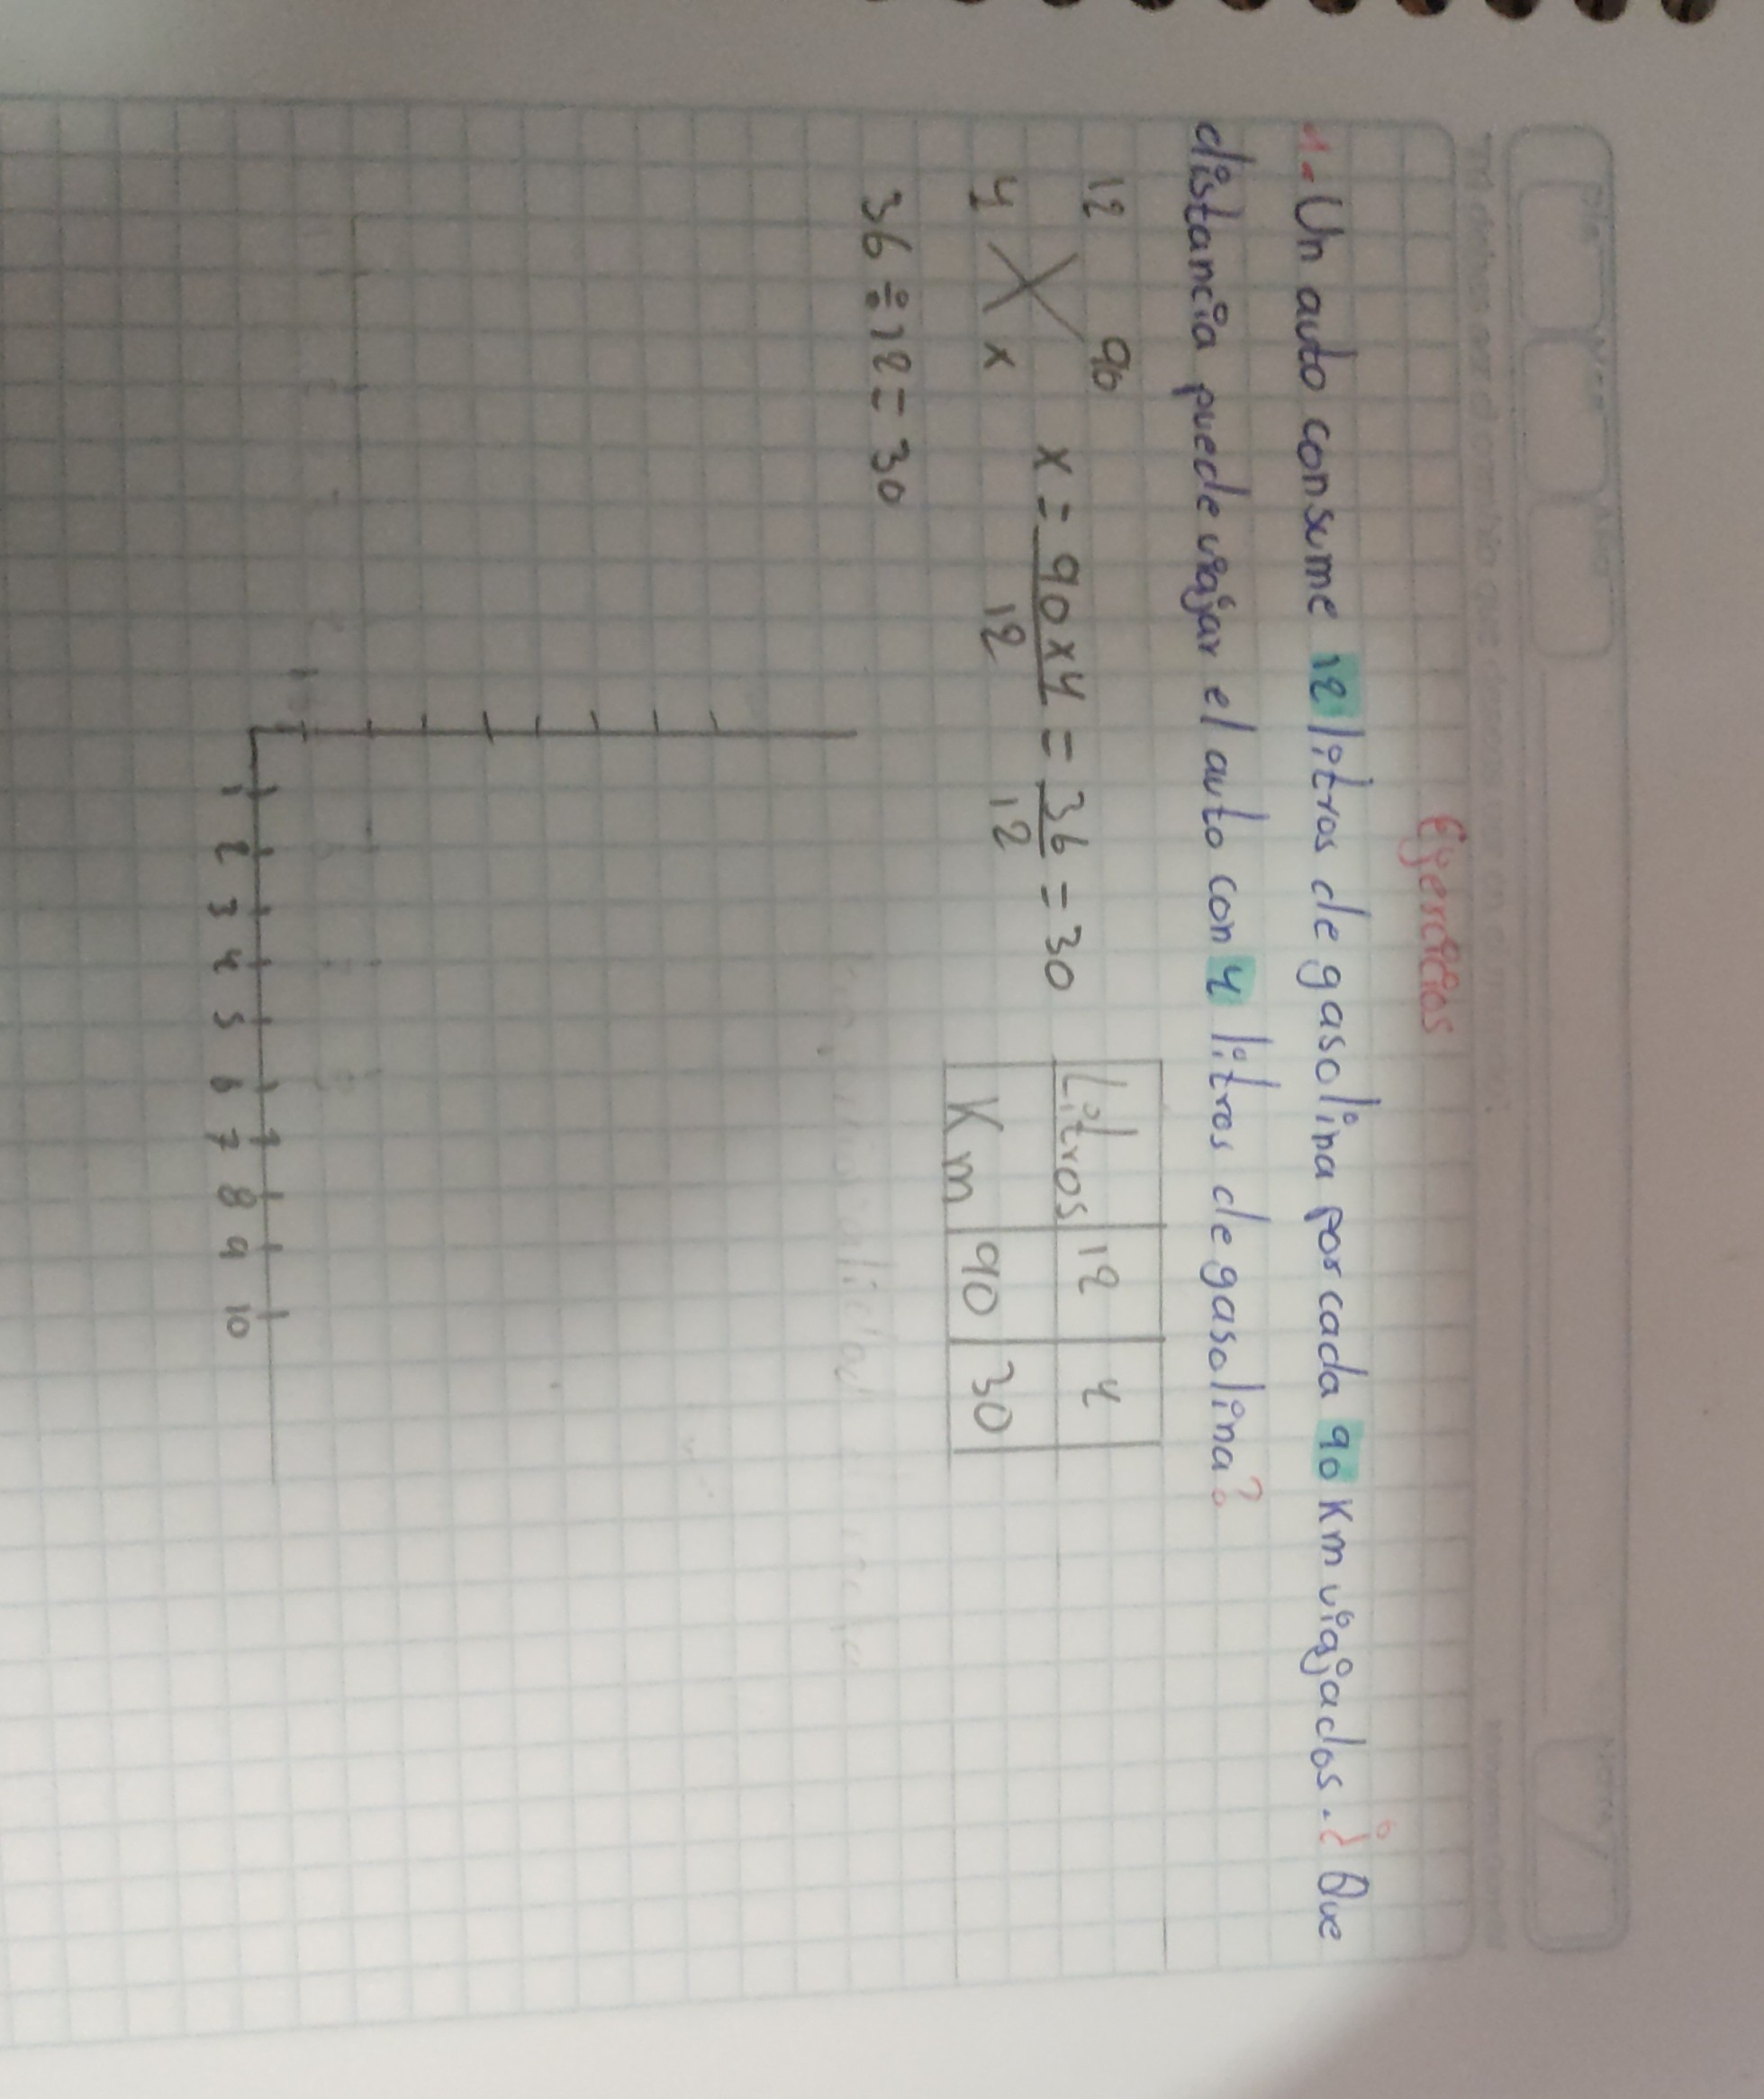 Ejercicios
1.- Un auto consume 12 litros de gasolina por cada 90 Km viajados. ¿Que
distancia puede viajar el auto con 4 litros de gasolina?
12 90
4 x
x = 90x4 = 36 = 30
12 12
Litros 12 4
Km 90 30
36 ÷ 12 = 30
1 2 3 4 5 6 7 8 9 10